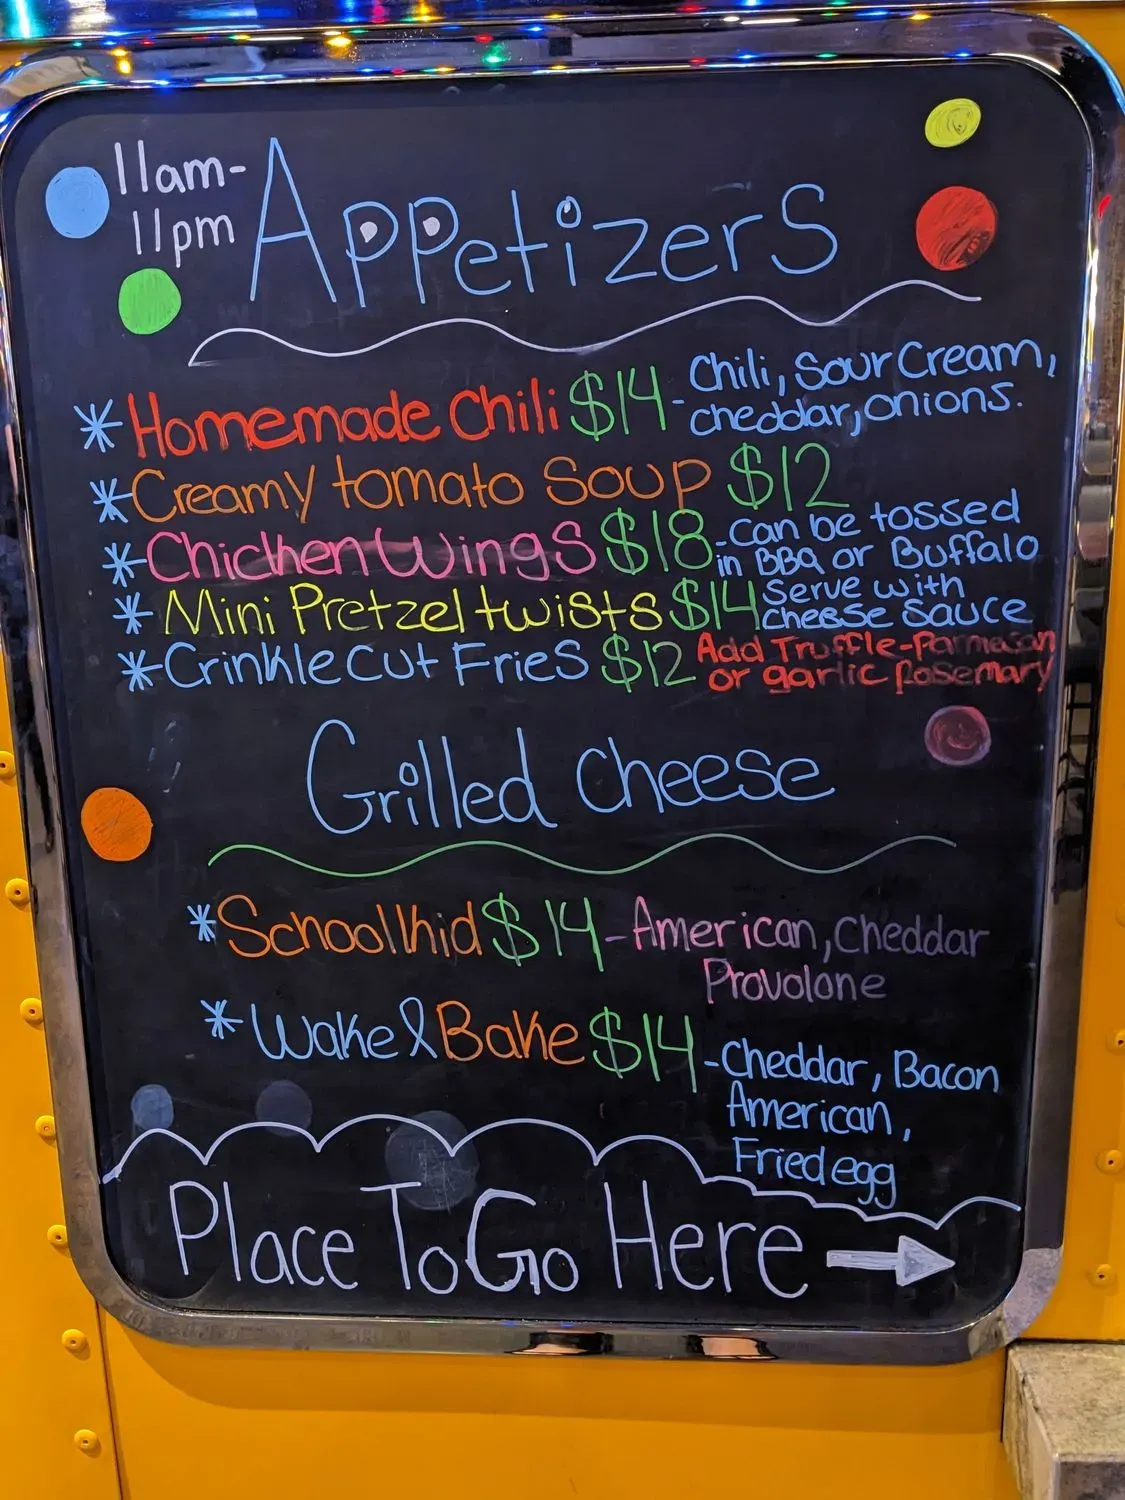 11am-
11pm
Appetizers
*Homemade Chili $14 - Chili, Sour Cream,
cheddar, onions.
*Creamy tomato Soup $12
*Chicken Wings $18 - Can be tossed
in BBQ or Buffalo
*Mini Pretzel twists $14 Serve with
cheese sauce
*Crinkle cut Fries $12 Add Truffle-Parmesan
or garlic Rosemary
Grilled Cheese
*School kid $14 - American, Cheddar
Provolone
*Wake & Bake $14 - Cheddar, Bacon
American,
Fried egg
Place To Go Here